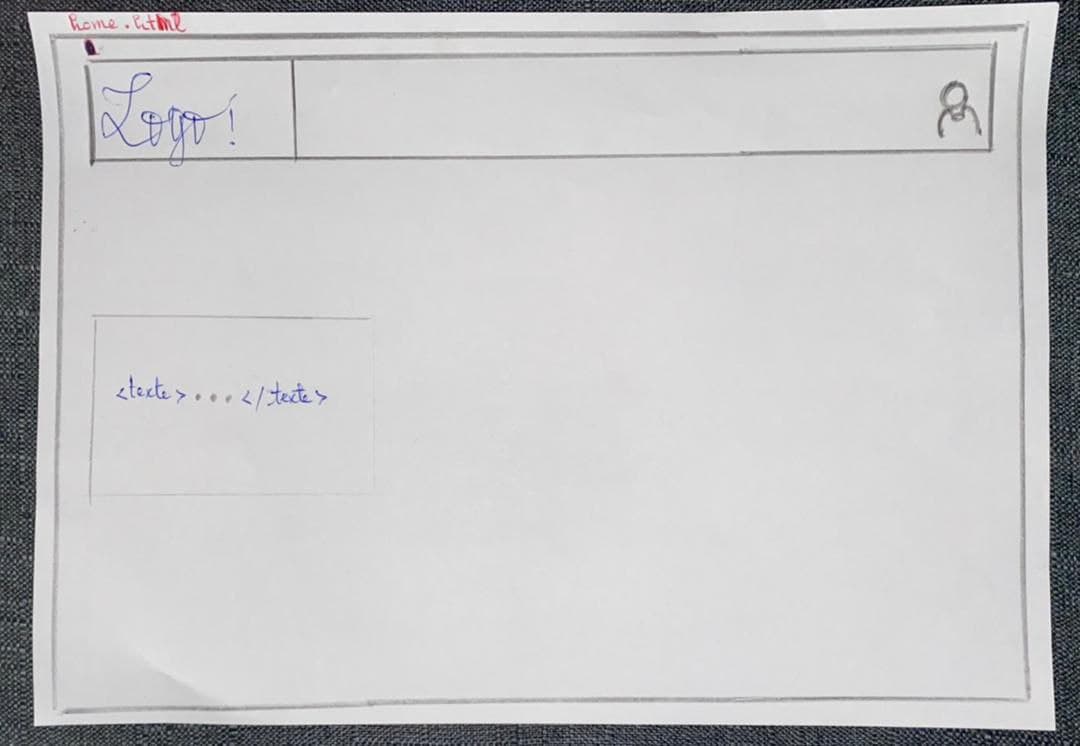 home.html
Logo!
<texte>...</texte>